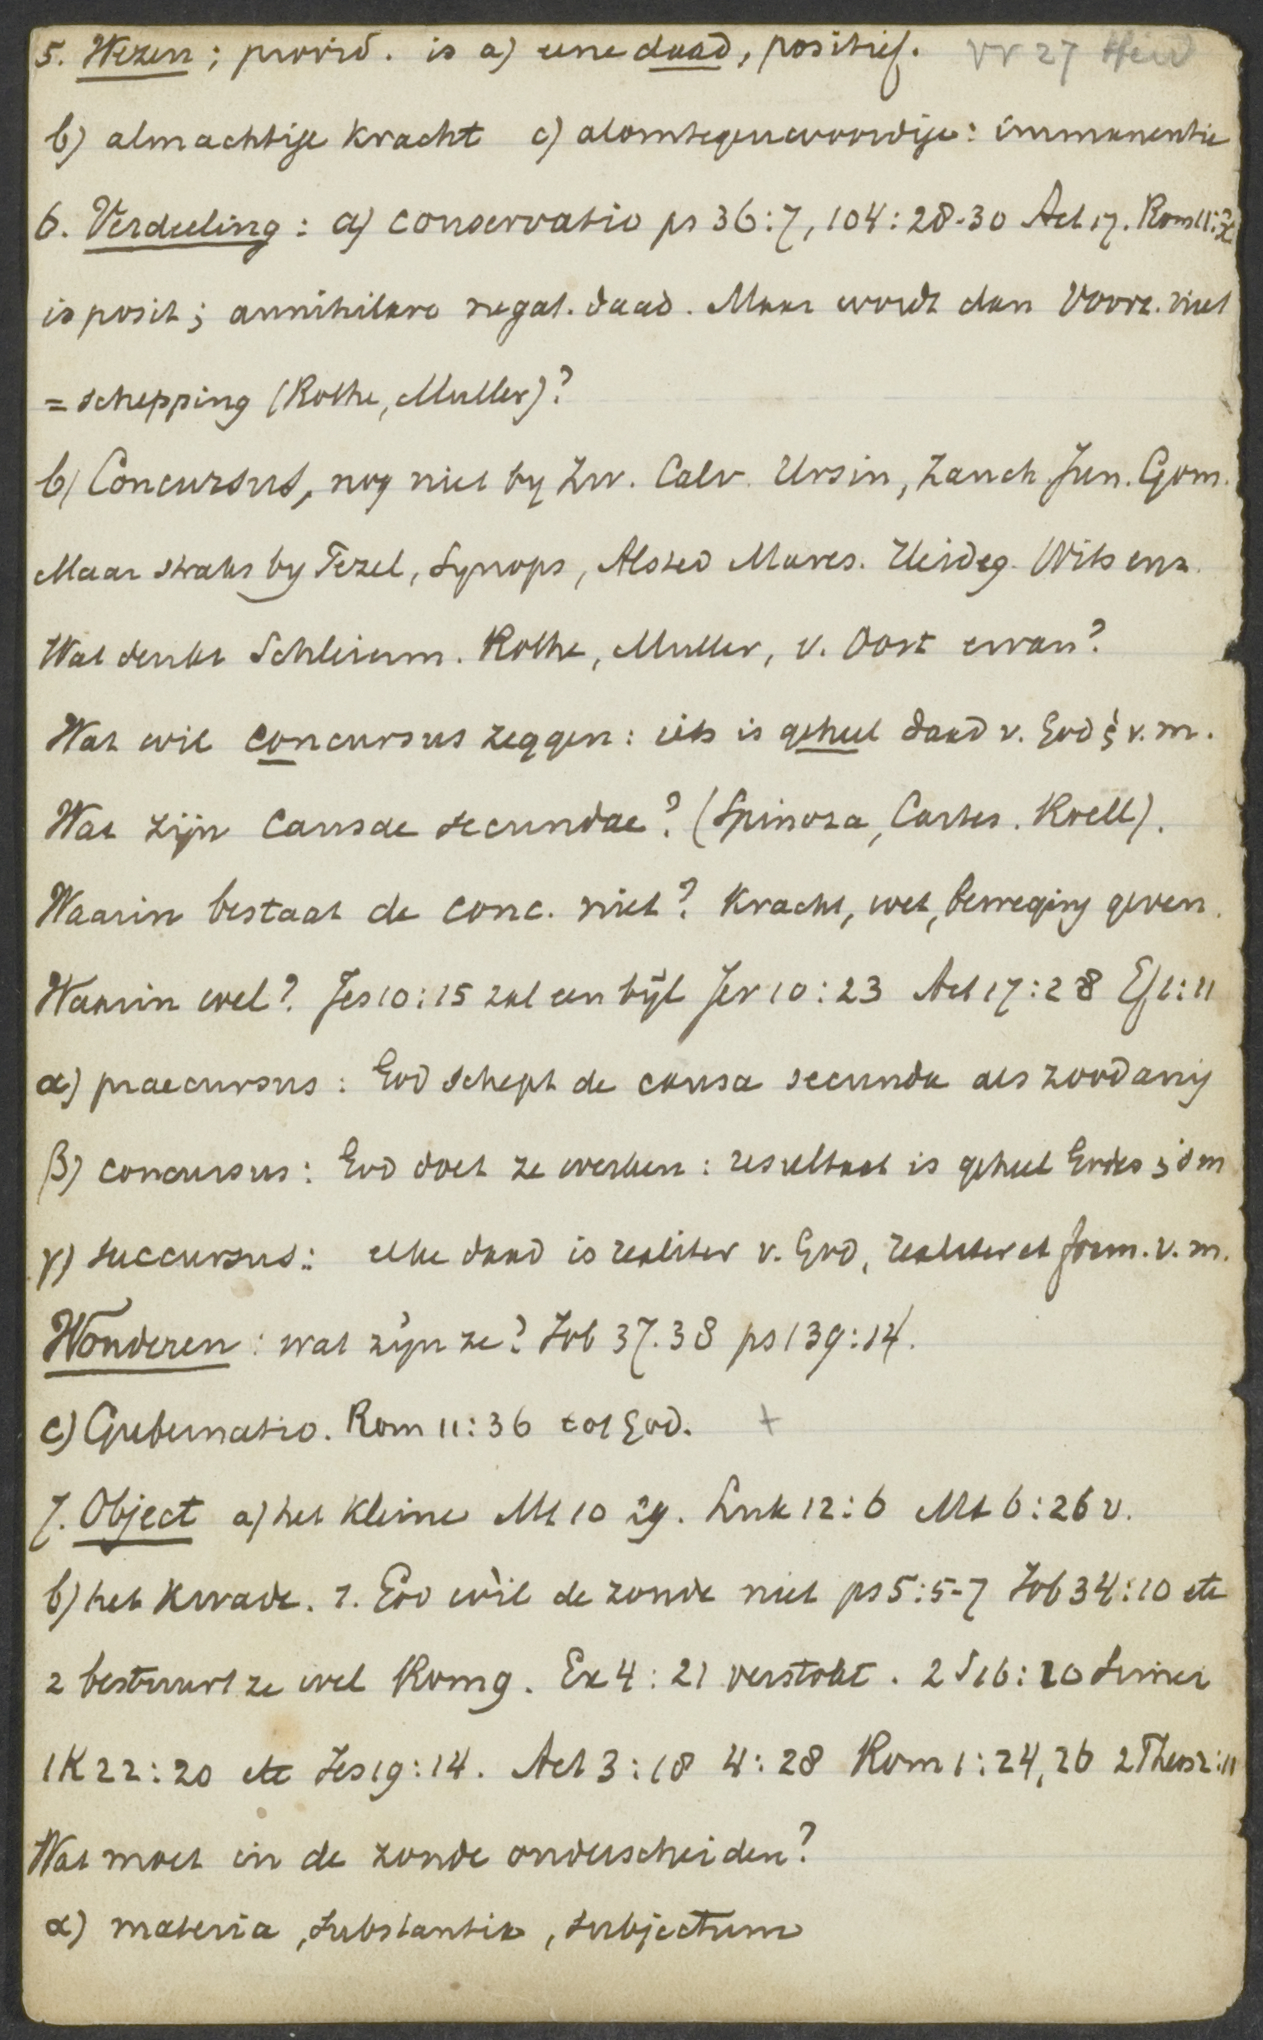 5. Wezen; provid. is a) eene daad, positief. vr 27 Heid
b) almachtige kracht c) alomtegenwoordige: immanentie
6. Verdeeling: a) conservatio ps 36:7, 104:28-30 Act 17. Rom 11:36
is posit; annihilare negat. daad. Maar wordt dan Voorz. niet
= schepping (Rothe, Muller)?
b) Concursus, nog niet by Zw. Calv. Ursin, Zanch Jun. Gom.
Maar straks by Tezel, Synops, Alsted Mares. Heideg. Wits enz.
Wat denkt Schleierm. Rothe, Muller, v. Oost ervan?
Wat wil concursus zeggen: iets is geheel daad v. God & v. m.
Wat zijn causae secundae? (Spinoza, Cartes. Krell).
Waarin bestaat de conc. niet? Kracht, wet, beweging geven.
Waarin wel? Jes 10:15 zal een bijl Jer 10:23 Act 17:28 Ef 1:11
α) praecursus: God schept de causa secunda als zoodanig
β) concursus: God doet ze werken: resultaat is geheel Godes & d m
γ) succursus: elke daad is realiter v. God, realiter et form. v. m.
Wonderen: wat zijn ze? Job 37.38 ps 139:14.
c) Gubernatio. Rom 11:36 tot God. +
7. Object a) het kleine Mt 10 29. Luk 12:6 Mt 6:26 v.
b) het kwade. 1. God wil de zonde niet ps 5:5-7 Job 34:10 etc
2 bestuurt ze wel Rom 9. Ex 4:21 verstokt. 2 S 16:10 Simei
1K 22:20 etc Jes 19:14. Act 3:18 4:28 Rom 1:24,26 2 Thess 2:11
Wat moet in de zonde onderscheiden?
α) materia, substantia, subjectum